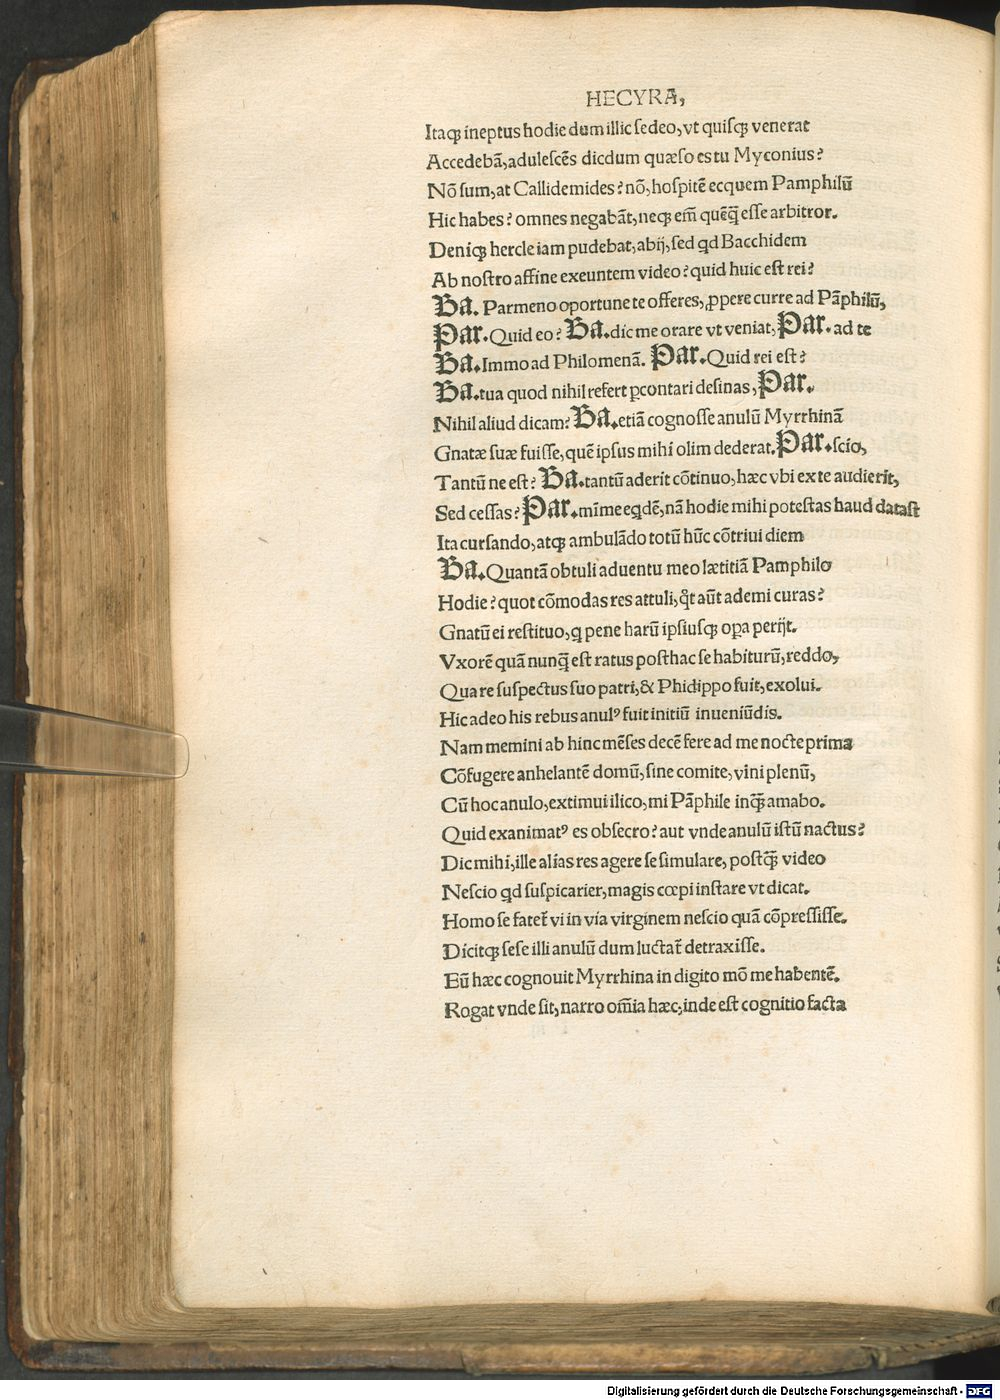 HECYRA,
Itaqꝫ ineptus hodie dum illic sedeo, vt quisqꝫ venerat
Accedebã, adulescẽs dicdum quæso es tu Myconius?
Nõ sum, at Callidemides? nõ, hospitẽ ecquem Pamphilũ
Hic habes? omnes negabãt, neqꝫ em̃ quẽq̃ esse arbitror.
Deniqꝫ hercle iam pudebat, abij, sed qd Bacchidem
Ab nostro affine exeuntem video? quid huic est rei?
Ba. Parmeno oportune te offeres, ꝓpere curre ad Pãphilũ,
Par. Quid eo? Ba. dic me orare vt veniat, Par. ad te
Ba. Immo ad Philomenã. Par. Quid rei est?
Ba. tua quod nihil refert ꝑcontari desinas, Par.
Nihil aliud dicam? Ba. etiã cognosse anulũ Myrrhinã
Gnatæ suæ fuisse, quẽ ipsus mihi olim dederat. Par. scio,
Tantũ ne est? Ba. tantũ aderit cõtinuo, hæc vbi ex te audierit,
Sed cessas? Par. mĩme eqdẽ, nã hodie mihi potestas haud data st
Ita cursando, atqꝫ ambulãdo totũ hũc cõtriui diem
Ba. Quantã obtuli aduentu meo lætitiã Pamphilo
Hodie? quot cõmodas res attuli, qᷓt aũt ademi curas?
Gnatũ ei restituo, q pene harũ ipsiusqꝫ oꝑa perijt.
Vxorẽ quã nunq̃ est ratus posthac se habiturũ, reddo,
Qua re suspectus suo patri, & Phidippo fuit, exolui.
Hic adeo his rebus anulꝰ fuit initiũ inueniũdis.
Nam memini ab hinc mẽses decẽ fere ad me nocte prima
Cõfugere anhelantẽ domũ, sine comite, vini plenũ,
Cũ hoc anulo, extimui ilico, mi Pãphile inq̃ amabo.
Quid exanimatꝰ es obsecro? aut vnde anulũ istũ nactus?
Dic mihi, ille alias res agere se simulare, postq̃ video
Nescio qd suspicarier, magis cœpi instare vt dicat.
Homo se fatet̃ vi in via virginem nescio quã cõpressisse.
Dicitqꝫ sese illi anulũ dum luctat̃ detraxisse.
Eũ hæc cognouit Myrrhina in digito mõ me habentẽ.
Rogat vnde sit, narro om̃ia hæc, inde est cognitio facta
Digitalisierung gefördert durch die Deutsche Forschungsgemeinschaft - DFG